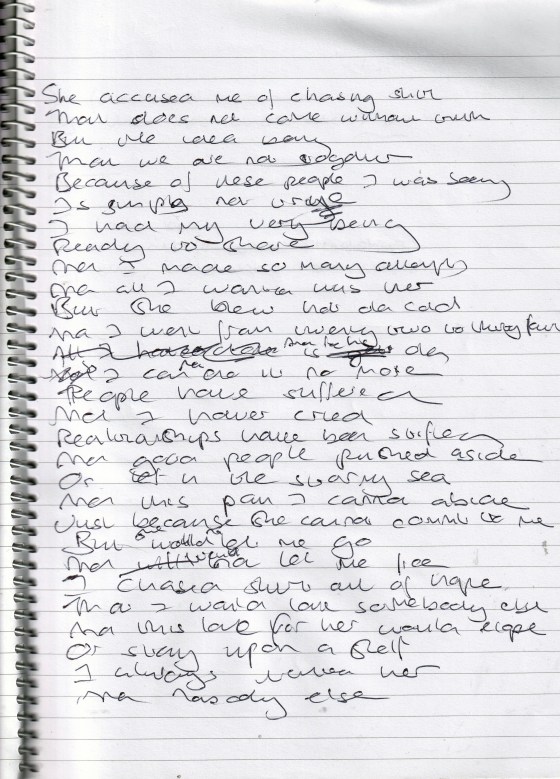 She accused me of chasing skirt
That does not come without truth
But the idea being
That we are not together
Because of these people I was seeing
Is simply not
I had my very being
Ready to share
And I made so many attempts
And all I wanted was her
But she blew hot and cold
And I went from twenty two to thirty four
is day
And I can do it no more
People have suffered
And I have cried
Relationships have been stifled
And good people pushed aside
Or set in the starry sea
And this pain I cannot abide
Just because she cannot commit to me
But she wouldn't let me go
And let me free
I chased skirt out of hope
That I would love somebody else
And this love for her would elope
Or stay upon a shelf
I always wanted her
And nobody else